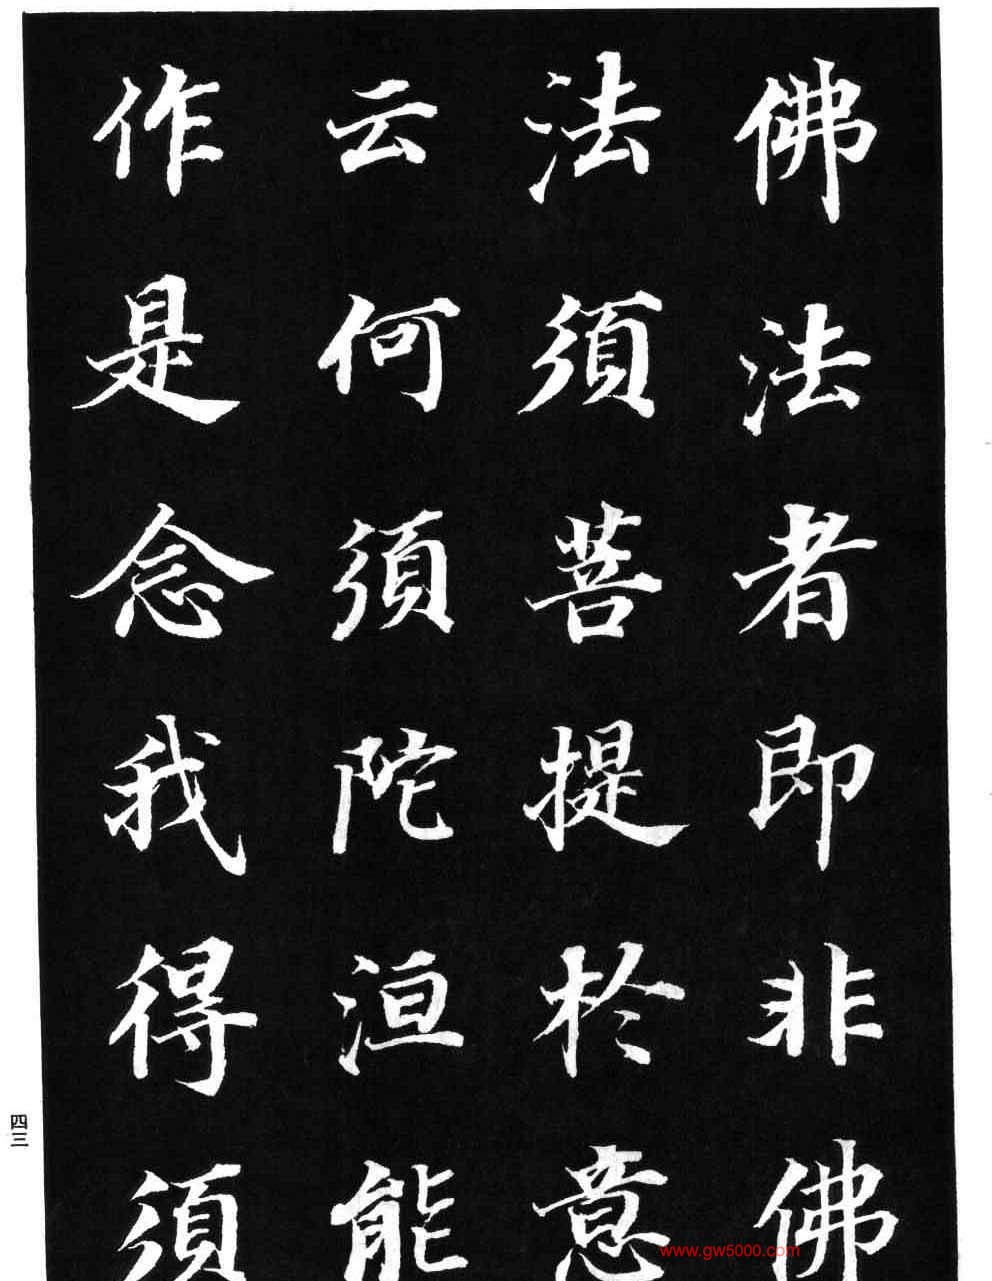 佛法者即非佛
法須菩提於意
云何須陀洹能
作是念我得須
四三
www.gw5000.com